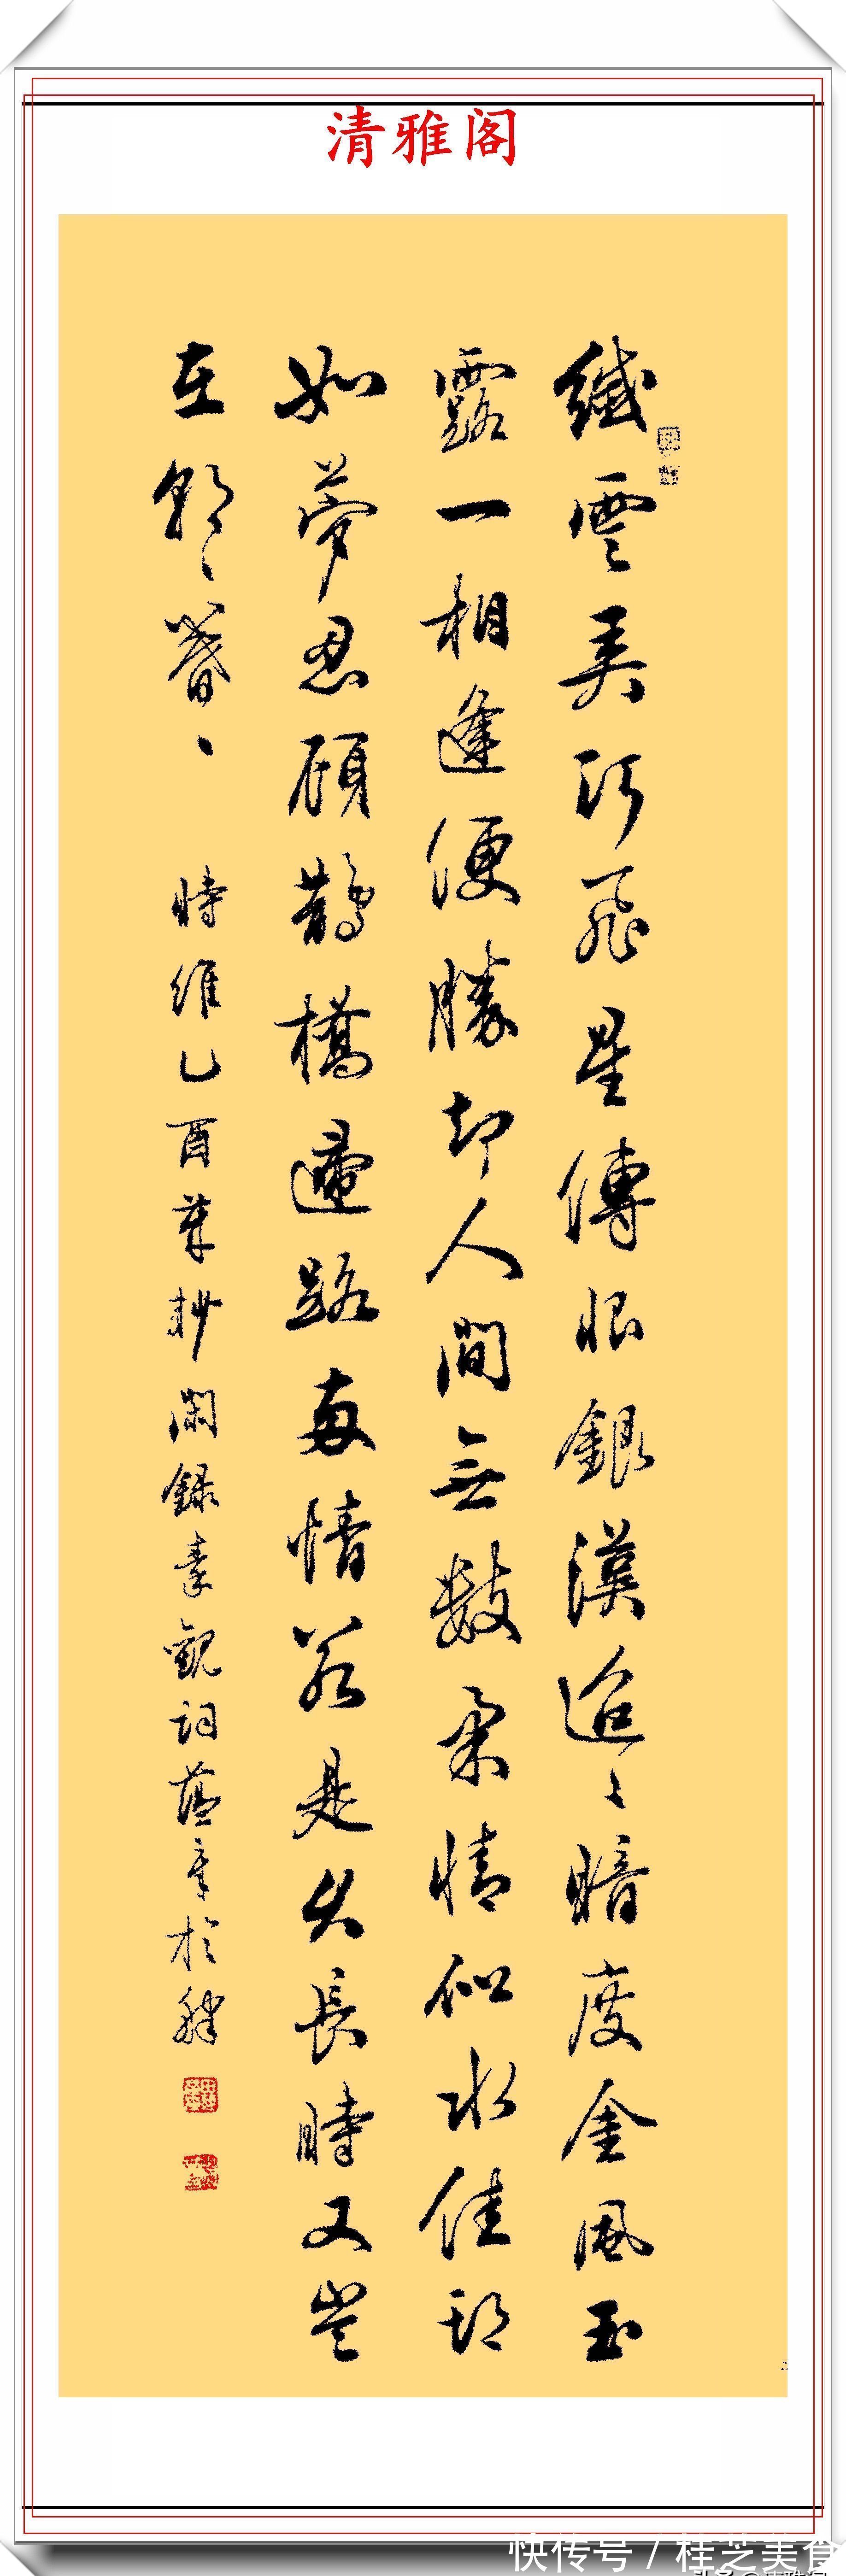 清雅阁
纖雲弄巧飛星傳恨銀漢迢〻暗度金風玉
露一相逢便勝却人間無數柔情似水佳期
如夢忍顧鵲橋歸路兩情若是久長時又豈
在朝〻暮〻 時維乙酉 杪閑錄秦觀詞 章於
快传号 / 桂芝美食